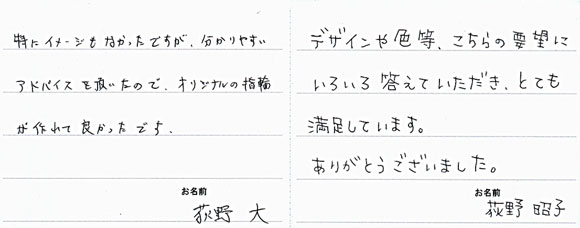 特にイメージもなかったですが、分かりやすい
アドバイスを頂いたので、オリジナルの指輪
が作れて良かったです.
お名前
荻野 大
デザインや色等、こちらの要望に
いろいろ答えていただき、とても
満足しています。
ありがとうございました。
お名前
荻野 昭子